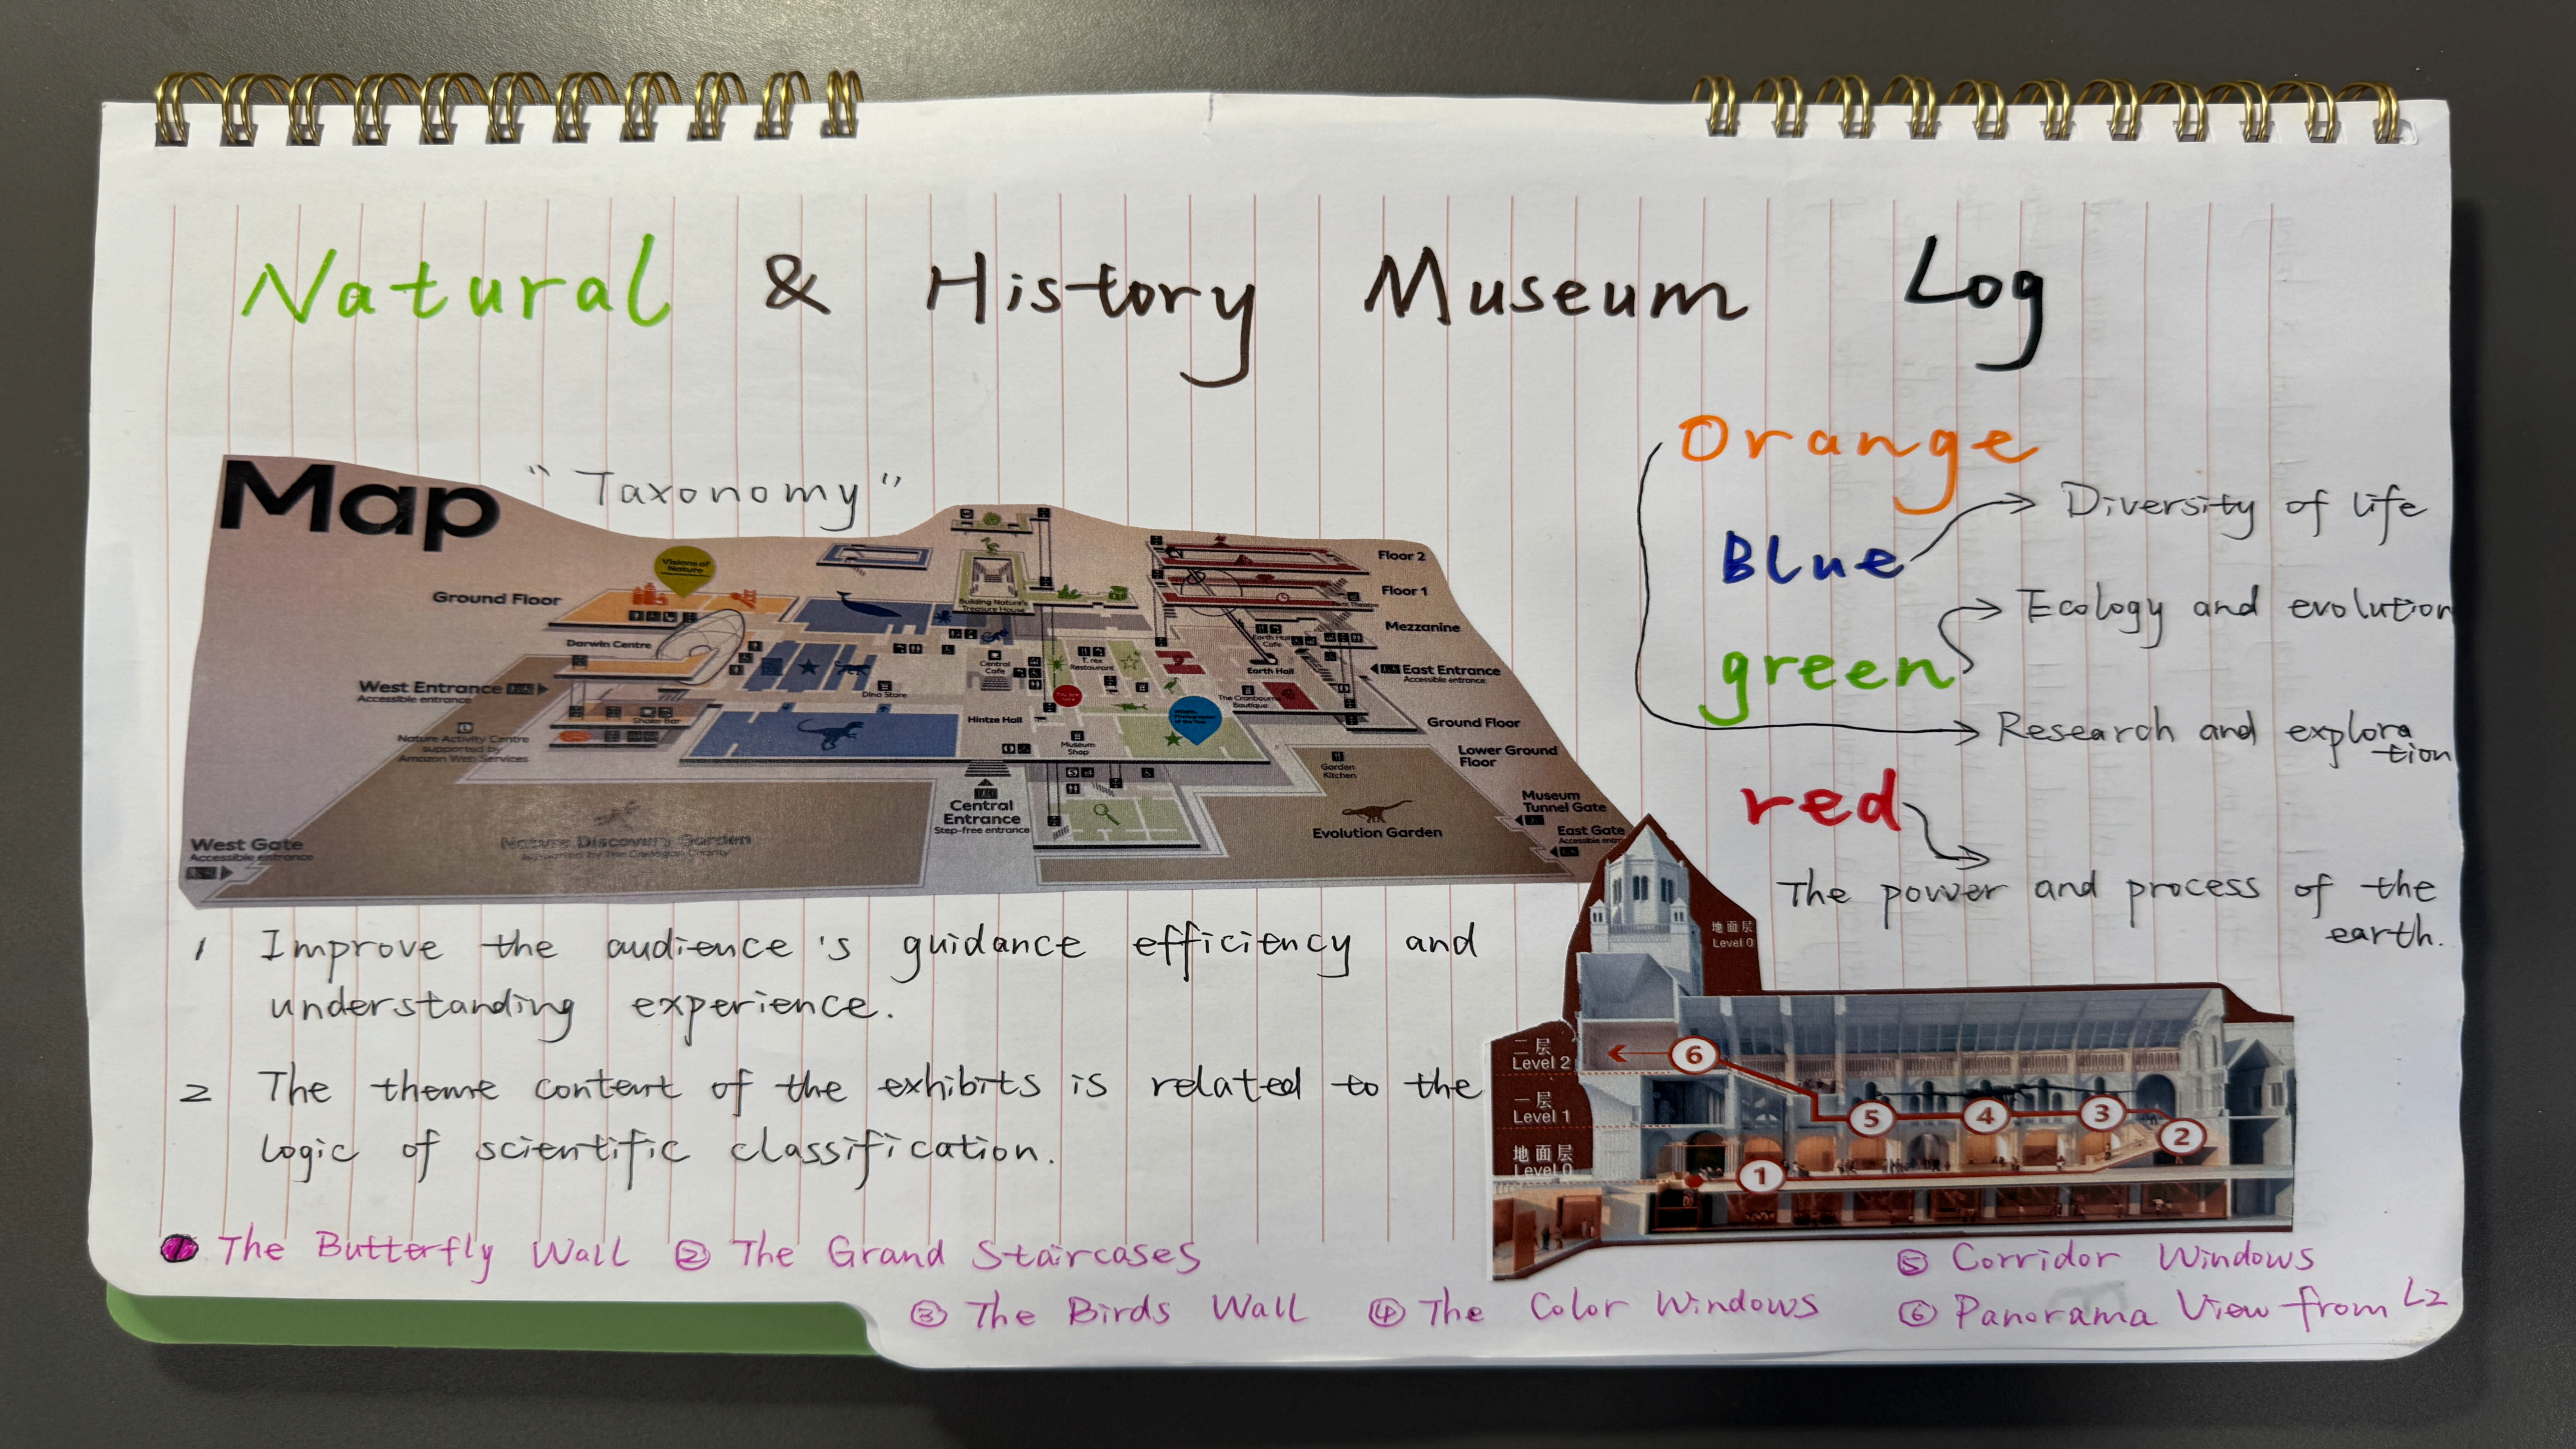 Natural & History Museum Log
Map
"Taxonomy"
Orange
Blue
Diversity of life
Ecology and evolution
green
Research and explora
tion
red
The power and process of the
earth.
Visions of
Nature
Ground Floor
Darwin Centre
West Entrance
Accessible entrance
Nature Activity Centre
supported by
Amazon Web Services
Shake Bar
West Gate
Accessible entrance
Nature Discovery Garden
Building Nature's
Treasure House
Central
Cafe
T. rex
Restaurant
Dino Store
Hintze Hall
Museum
Shop
Central
Entrance
Step-free entrance
Floor 2
Floor 1
Mezzanine
Earth Hall
Cafe
Earth Hall
East Entrance
Accessible entrance
The Cranbourne
Boutique
Ground Floor
Lower Ground
Floor
Garden
Kitchen
Evolution Garden
Museum
Tunnel Gate
East Gate
1 Improve the audience's guidance efficiency and
understanding experience.
2 The theme content of the exhibits is related to the
logic of scientific classification.
地面层
Level 0
二层
Level 2
一层
Level 1
地面层
Level 0
6
5
4
3
2
1
1 The Butterfly Wall ② The Grand Staircases
③ The Birds Wall ④ The Color Windows
⑤ Corridor Windows
⑥ Panorama View from L2